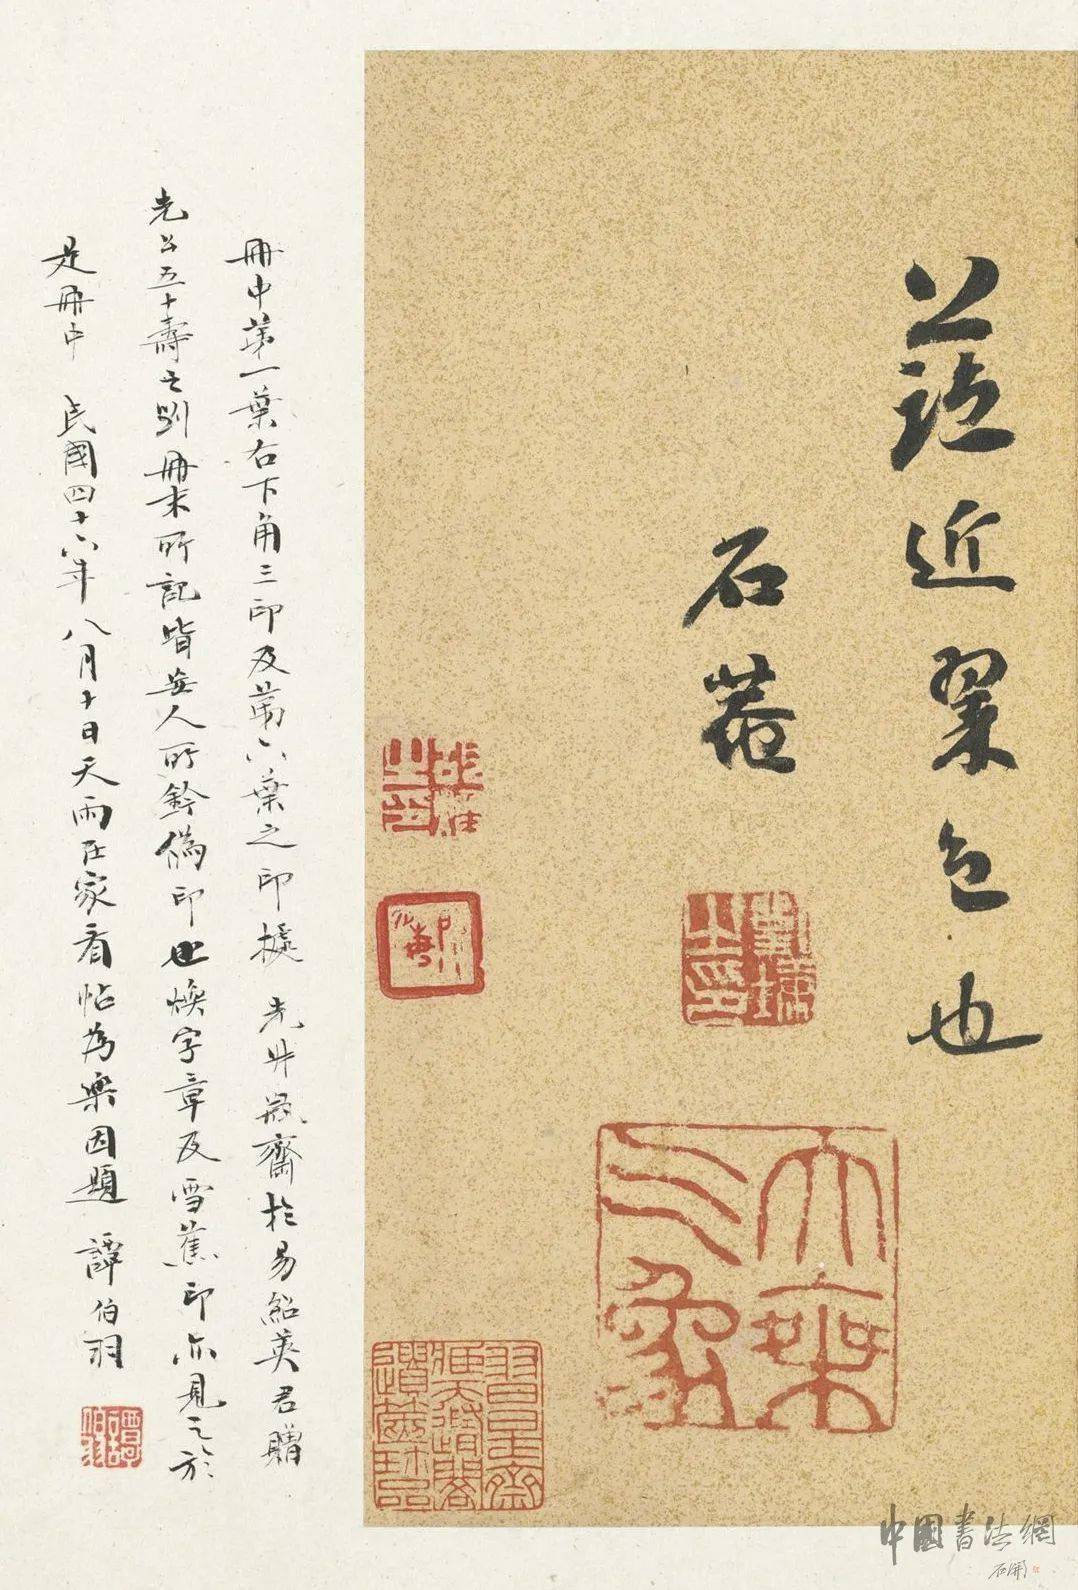 近翠色也
石菴
劉墉之印
冊中第一葉右下角三印及第六葉之印據 先叔瓶齋於易紹英君贈
先公五十壽之劉冊末所記皆妄人所鈐偽印也煥字章及雪蕉印亦見之於
是冊中 民國四十六年八月十日天雨在家看帖為樂因題 譚伯羽
譚伯羽
中國書法網
石開